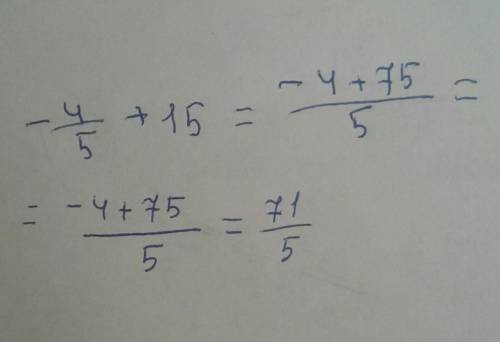 -4/5 + 15 = (-4+75)/5 =
= (-4+75)/5 = 71/5